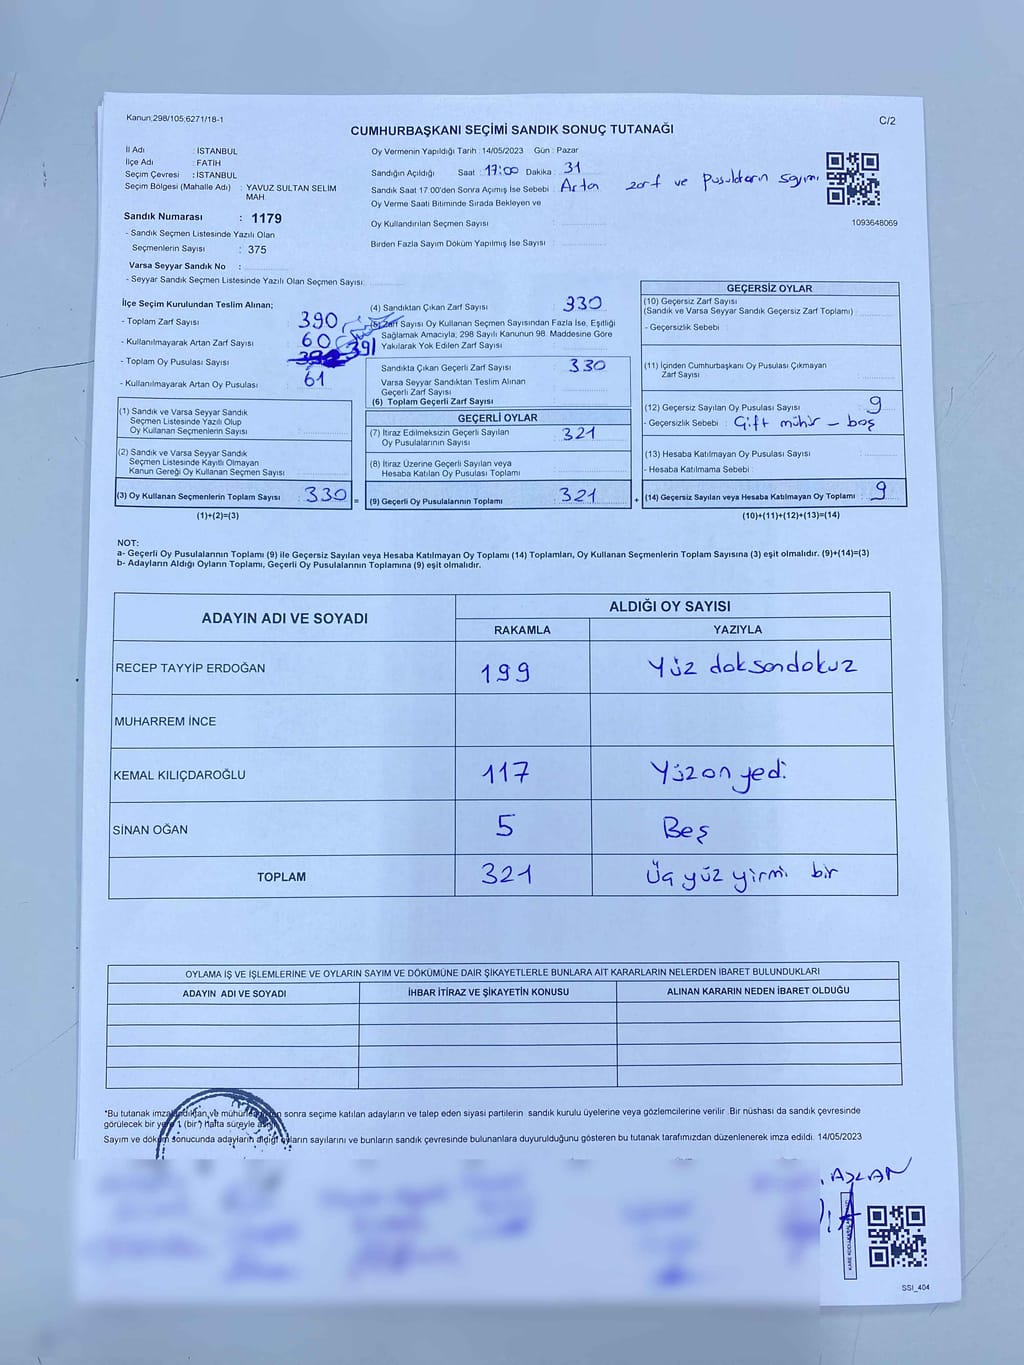 Kanun;298/105;6271/18-1
C/2
CUMHURBAŞKANI SEÇİMİ SANDIK SONUÇ TUTANAĞI
İl Adı : İSTANBUL
İlçe Adı : FATİH
Seçim Çevresi : İSTANBUL
Seçim Bölgesi (Mahalle Adı) : YAVUZ SULTAN SELİM MAH.
Sandık Numarası : 1179
- Sandık Seçmen Listesinde Yazılı Olan
Seçmenlerin Sayısı : 375
Varsa Seyyar Sandık No :
- Seyyar Sandık Seçmen Listesinde Yazılı Olan Seçmen Sayısı:
Oy Vermenin Yapıldığı Tarih : 14/05/2023 Gün : Pazar
Sandığın Açıldığı Saat : 17:00 Dakika : 31
Sandık Saat 17.00'den Sonra Açımış İse Sebebi : Artan zarf ve pusulaların sayımı
Oy Verme Saati Bitiminde Sırada Bekleyen ve
Oy Kullandırılan Seçmen Sayısı :
Birden Fazla Sayım Döküm Yapılmış İse Sayısı :
1093648069
İlçe Seçim Kurulundan Teslim Alınan;
- Toplam Zarf Sayısı : 390
- Kullanılmayarak Artan Zarf Sayısı : 60
- Toplam Oy Pusulası Sayısı : 391
- Kullanılmayarak Artan Oy Pusulası : 61
(1) Sandık ve Varsa Seyyar Sandık
Seçmen Listesinde Yazılı Olup
Oy Kullanan Seçmenlerin Sayısı :
(2) Sandık ve Varsa Seyyar Sandık
Seçmen Listesinde Kayıtlı Olmayan
Kanun Gereği Oy Kullanan Seçmen Sayısı :
(3) Oy Kullanan Seçmenlerin Toplam Sayısı : 330 =
(1)+(2)=(3)
(4) Sandıktan Çıkan Zarf Sayısı : 330
(5) Zarf Sayısı Oy Kullanan Seçmen Sayısından Fazla İse, Eşitliği
Sağlamak Amacıyla; 298 Sayılı Kanunun 98. Maddesine Göre
Yakılarak Yok Edilen Zarf Sayısı :
Sandıkta Çıkan Geçerli Zarf Sayısı : 330
Varsa Seyyar Sandıktan Teslim Alınan
Geçerli Zarf Sayısı :
(6) Toplam Geçerli Zarf Sayısı :
GEÇERLİ OYLAR
(7) İtiraz Edilmeksizin Geçerli Sayılan
Oy Pusulalarının Sayısı : 321
(8) İtiraz Üzerine Geçerli Sayılan veya
Hesaba Katılan Oy Pusulası Toplamı :
(9) Geçerli Oy Pusulalarının Toplamı : 321 +
GEÇERSİZ OYLAR
(10) Geçersiz Zarf Sayısı
(Sandık ve Varsa Seyyar Sandık Geçersiz Zarf Toplamı) :
- Geçersizlik Sebebi :
(11) İçinden Cumhurbaşkanı Oy Pusulası Çıkmayan
Zarf Sayısı :
(12) Geçersiz Sayılan Oy Pusulası Sayısı : 9
- Geçersizlik Sebebi : Çift mühür - boş
(13) Hesaba Katılmayan Oy Pusulası Sayısı :
- Hesaba Katılmama Sebebi :
(14) Geçersiz Sayılan veya Hesaba Katılmayan Oy Toplamı : 9
(10)+(11)+(12)+(13)=(14)
NOT:
a- Geçerli Oy Pusulalarının Toplamı (9) ile Geçersiz Sayılan veya Hesaba Katılmayan Oy Toplamı (14) Toplamları, Oy Kullanan Seçmenlerin Toplam Sayısına (3) eşit olmalıdır. (9)+(14)=(3)
b- Adayların Aldığı Oyların Toplamı, Geçerli Oy Pusulalarının Toplamına (9) eşit olmalıdır.
ADAYIN ADI VE SOYADI
ALDIĞI OY SAYISI
RAKAMLA YAZIYLA
RECEP TAYYİP ERDOĞAN 199 Yüz doksandokuz
MUHARREM İNCE
KEMAL KILIÇDAROĞLU 117 Yüzonyedi
SİNAN OĞAN 5 Beş
TOPLAM 321 Üç yüz yirmi bir
OYLAMA İŞ VE İŞLEMLERİNE VE OYLARIN SAYIM VE DÖKÜMÜNE DAİR ŞİKAYETLERLE BUNLARA AİT KARARLARIN NELERDEN İBARET BULUNDUKLARI
ADAYIN ADI VE SOYADI İHBAR İTİRAZ VE ŞİKAYETİN KONUSU ALINAN KARARIN NEDEN İBARET OLDUĞU
*Bu tutanak imzalandıktan ve mühürlendikten sonra seçime katılan adayların ve talep eden siyasi partilerin sandık kurulu üyelerine veya gözlemcilerine verilir .Bir nüshası da sandık çevresinde
görülecek bir yere 1 (bir) hafta süreyle asılır.
Sayım ve döküm sonucunda adayların aldığı oyların sayılarını ve bunların sandık çevresinde bulunanlara duyurulduğunu gösteren bu tutanak tarafımızdan düzenlenerek imza edildi. 14/05/2023
SSI_404